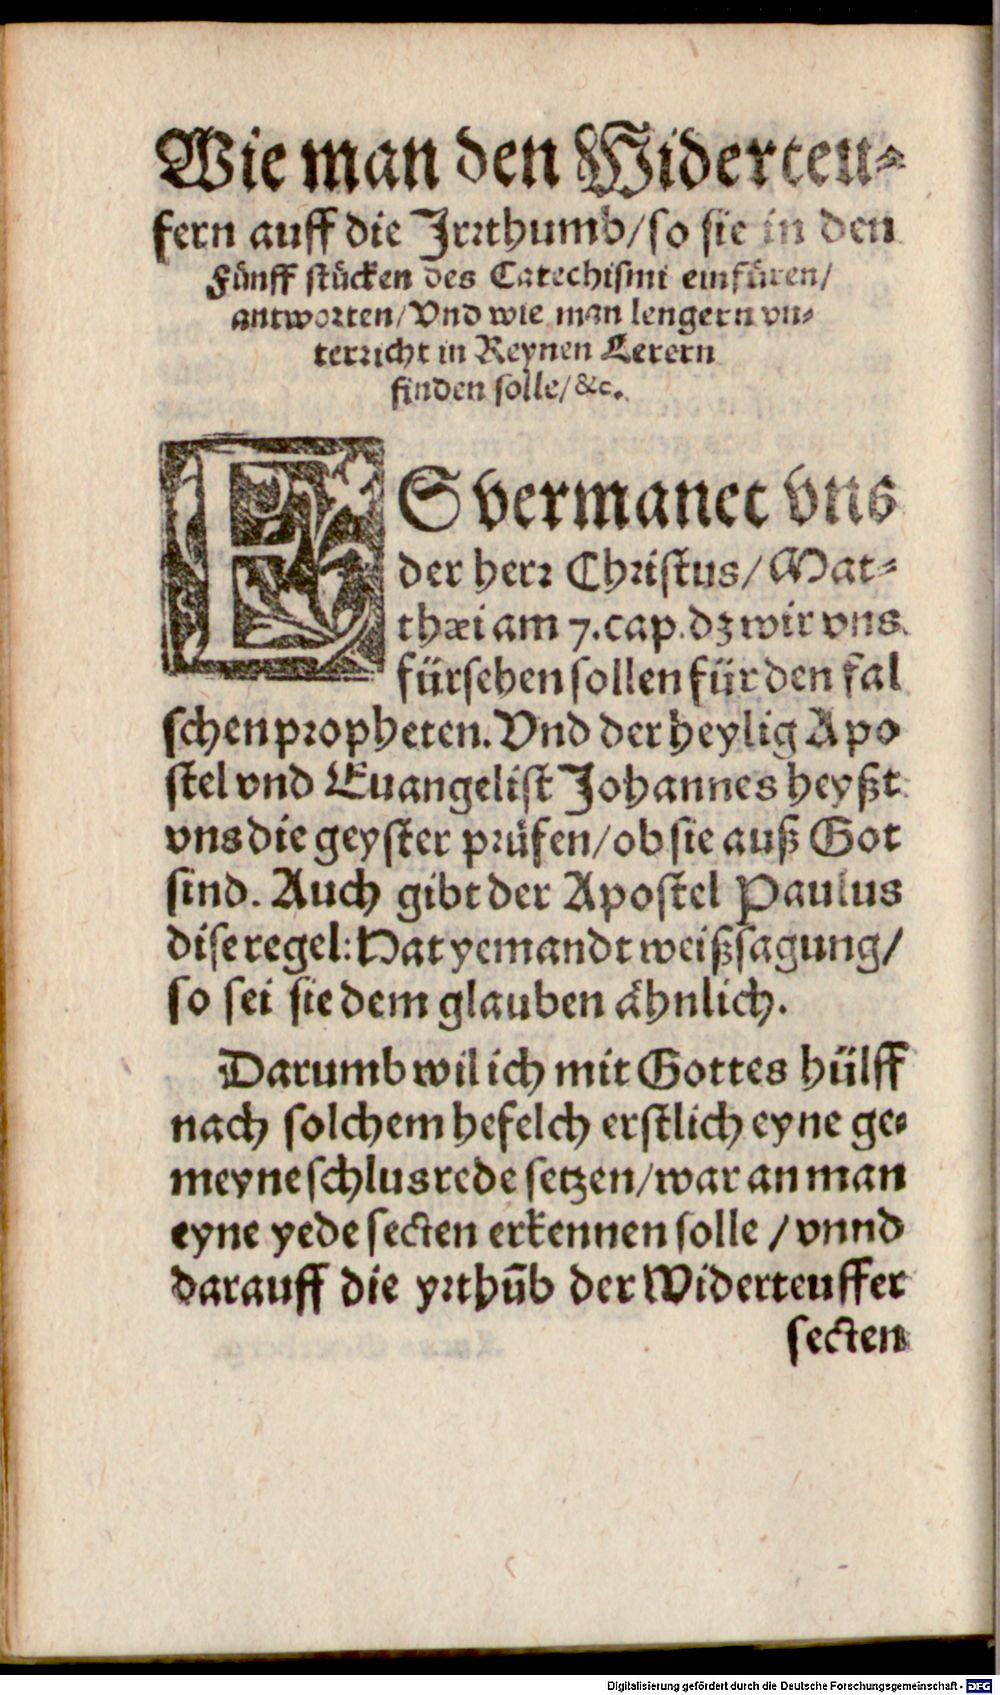 Wie man den Widerteu⸗
fern auff die Jrꝛthumb/ so sie in den
Fünff stücken des Catechismi einfüren/
antwoꝛten/ Vnd wie man lengern vn⸗
terꝛicht in Reynen Lerern
finden solle/ &c.
ES vermanet vns
der herꝛ Chꝛistus/ Mat⸗
thæi am 7. cap. dz wir vns
fürsehen sollen für den fal
schen pꝛopheten. Vnd der heylig Apo
stel vnd Euangelist Johannes heyßt
vns die geyster pꝛüfen/ ob sie auß Got
sind. Auch gibt der Apostel Paulus
dise regel: Hat yemandt weißsagung/
so sei sie dem glauben ähnlich.
Darumb wil ich mit Gottes hülff
nach solchem hefelch erstlich eyne ge⸗
meyne schlusrede setzen/ war an man
eyne yede secten erkennen solle / vnnd
darauff die yꝛthūb der Widerteuffer
secten
Digitalisierung gefördert durch die Deutsche Forschungsgemeinschaft - DFG